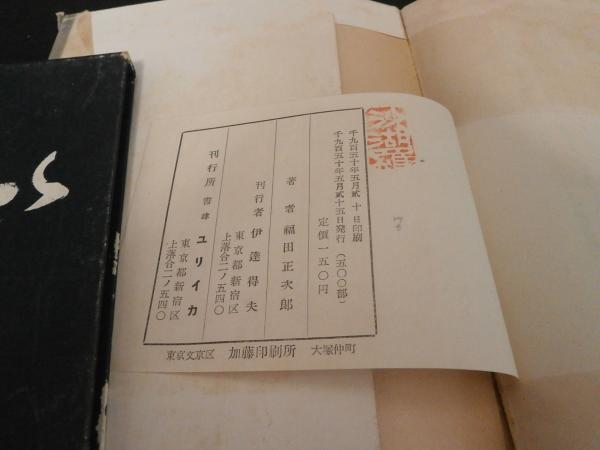 千九百五十年五月貳十日印刷
千九百五十年五月貳十五日発行（五〇〇部）
定價一五〇円
著者 福田正次郎
刊行者 伊達得夫
東京都新宿区
上落合二ノ五四〇
刊行所 書肆 ユリイカ
東京都新宿区
上落合二ノ五四〇
東京文京区 加藤印刷所 大塚仲町